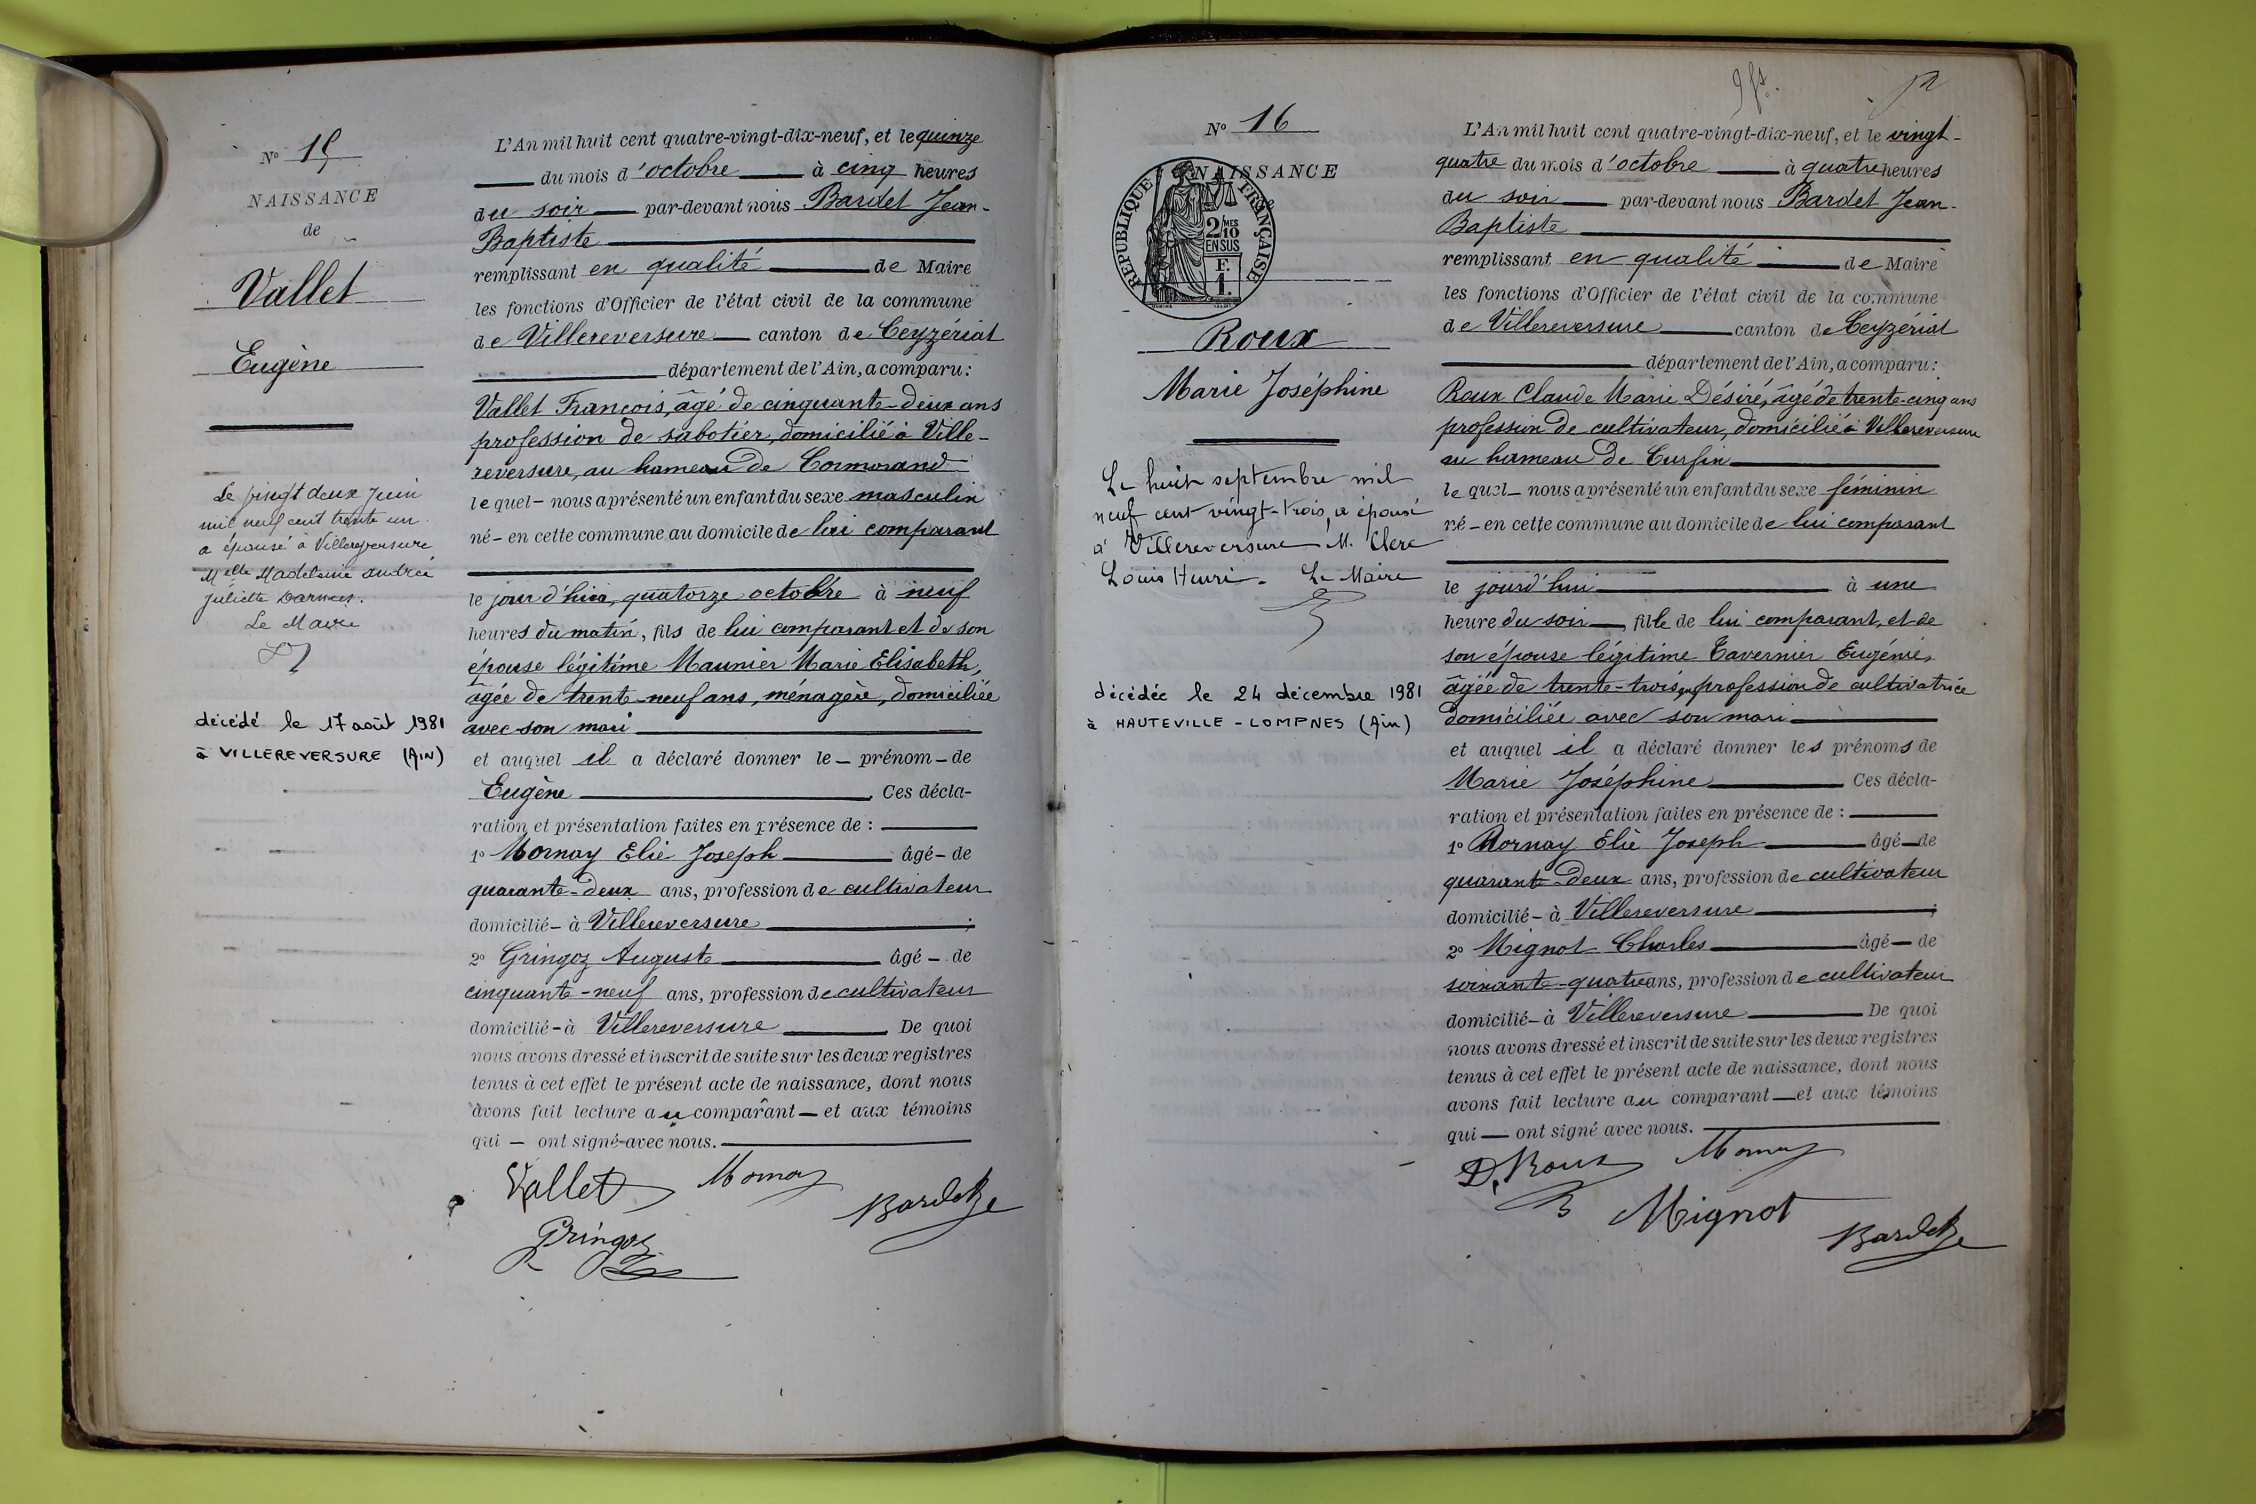 N° 15
NAISSANCE
de
Vallet
Eugène
Le vingt deux Juin
mil neuf cent trente un
a épousé à Villereversure
Melle Madeleine Andrée
Juliette
Le Maire
décédé le 17 août 1981
à VILLEREVERSURE (AIN)
L'An mil huit cent quatre-vingt-dix-neuf, et le quinze
du mois d'octobre à cinq heures
du soir par-devant nous Bardet Jean-
Baptiste
remplissant en qualité de Maire
les fonctions d'Officier de l'état civil de la commune
de Villereversure canton de Ceyzériat
département de l'Ain, a comparu:
Vallet François, âgé de cinquante-deux ans
profession de sabotier, domicilié à Ville-
reversure, au hameau de Cormorand
lequel - nous a présenté un enfant du sexe masculin
né - en cette commune au domicile de lui comparant
le jour d'hier, quatorze octobre à neuf
heures du matin, fils de lui comparant et de son
épouse légitime Maunier Marie Elisabeth,
âgée de trente-neuf ans, ménagère, domiciliée
avec son mari
et auquel il a déclaré donner le - prénom - de
Eugène Ces décla-
ration et présentation faites en présence de :
1° Mornay Elie Joseph âgé - de
quarante-deux ans, profession de cultivateur
domicilié - à Villereversure ;
2° Gringoz Auguste âgé - de
cinquante-neuf ans, profession de cultivateur
domicilié - à Villereversure De quoi
nous avons dressé et inscrit de suite sur les deux registres
tenus à cet effet le présent acte de naissance, dont nous
avons fait lecture au comparant - et aux témoins
qui - ont signé avec nous.
Vallet Mornay
Bardet
Gringoz
N° 16
NAISSANCE
REPUBLIQUE FRANÇAISE
2/MES
10
EN SUS
F.
1.
Roux
Marie Joséphine
Le huit septembre mil
neuf cent vingt-trois, a épousé
à Villereversure M. Clerc
Louis Henri. Le Maire
décédée le 24 décembre 1981
à HAUTEVILLE-LOMPNES (Ain)
L'An mil huit cent quatre-vingt-dix-neuf, et le vingt-
quatre du mois d'octobre à quatre heures
du soir par-devant nous Bardet Jean-
Baptiste
remplissant en qualité de Maire
les fonctions d'Officier de l'état civil de la commune
de Villereversure canton de Ceyzériat
département de l'Ain, a comparu:
Roux Claude Marie Désiré, âgé de trente-cinq ans
profession de cultivateur, domicilié à Villereversure
au hameau de Curfin
lequel - nous a présenté un enfant du sexe féminin
né - en cette commune au domicile de lui comparant
le jourd'hui à une
heure du soir, fille de lui comparant, et de
son épouse légitime Tavernier Eugénie,
âgée de trente-trois ans profession de cultivatrice
domiciliée avec son mari
et auquel il a déclaré donner les prénoms de
Marie Joséphine Ces décla-
ration et présentation faites en présence de :
1° Mornay Elie Joseph âgé - de
quarante-deux ans, profession de cultivateur
domicilié - à Villereversure ;
2° Mignot Charles âgé - de
soixante-quatre ans, profession de cultivateur
domicilié - à Villereversure De quoi
nous avons dressé et inscrit de suite sur les deux registres
tenus à cet effet le présent acte de naissance, dont nous
avons fait lecture au comparant - et aux témoins
qui - ont signé avec nous.
D. Roux Mornay
Mignot
Bardet